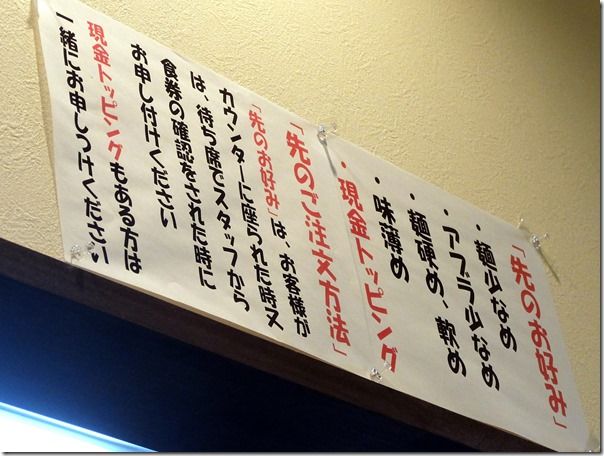 「先のお好み」
・麺少なめ
・アブラ少なめ
・麺硬め、軟め
・味薄め
・現金トッピング
「先のご注文方法」
「先のお好み」は、お客様が
カウンターに座られた時又
は、待ち席でスタッフから
食券の確認をされた時に
お申し付けください
現金トッピングもある方は
一緒にお申しつけください